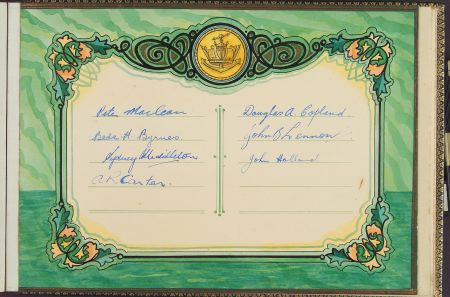 Pete MacLean
Beda H Byrnes
Sydney Middleton
C. R. Carter.
Douglas A. Copland
John B Lennon
John Holland